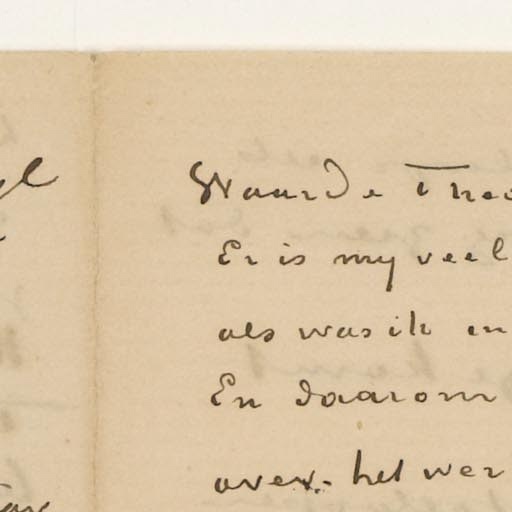 Waarde Theo
Er is my veel
als was ik en
En daarom
over. het wer